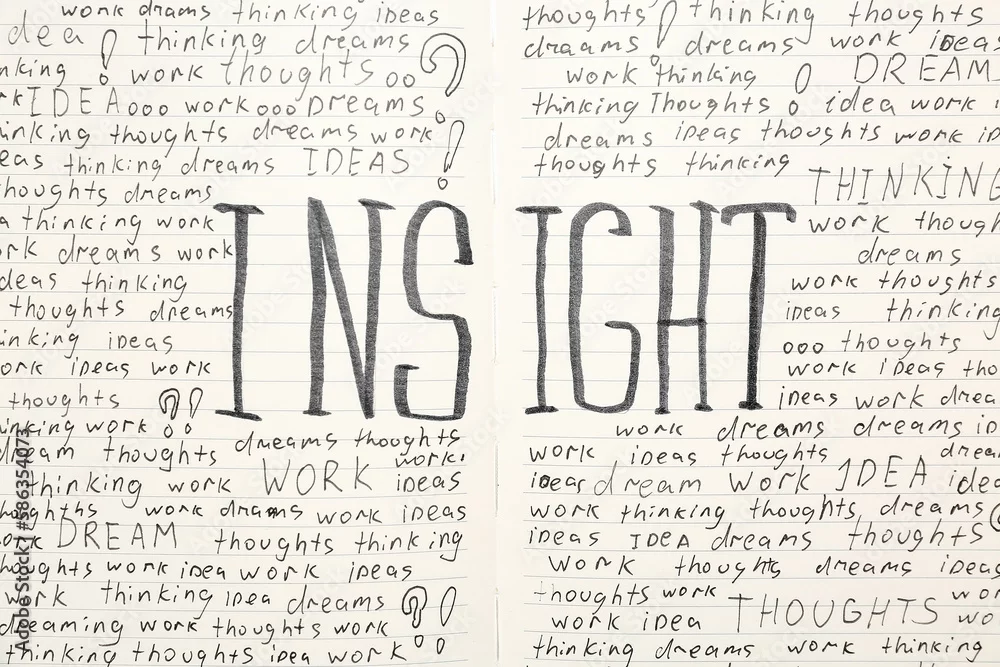 work drams thinking ideas
dea ! thinking dreams ?
nking ! work thoughts oo
rk IDEA ooo work ooo Dreams
inking thoughts dreams work !
eas thinking dreams IDEAS
houghts dreams
a thinking work
ork dreams work
deas thinking
thoughts dreams
inking ideas
ork ideas work
thoughts ?!
inking work
dreams thoughts
dream thoughts WORK work!
thinking work ideas
work drams work ideas
ork DREAM thoughts thinking
houghts work idea work ideas
work thinking idea dreams ?!
dreaming work thoughts work
thinking thoughts idea work
INSIGHT
thoughts ! thinking thoughts
draams dreams work ideas
work thinking DREAM
thinking Thoughts ! idea work i
dreams ideas thoughts work id
thoughts thinking THINKING
work though
dreams
work thoughts
ideas thinking
ooo thoughts
work ideas tho
ideas work drea
work dreams dreams id
work ideas thoughts dream
ideas dream work IDEA idea
work thinking thoughts, dreams
ideas IDEA dreams thoughts
work thoughts dreams ideas
thoughts work THOUGHTS wor
work idea wo
thinking dreams work thinking
Adobe Stock | #586354073